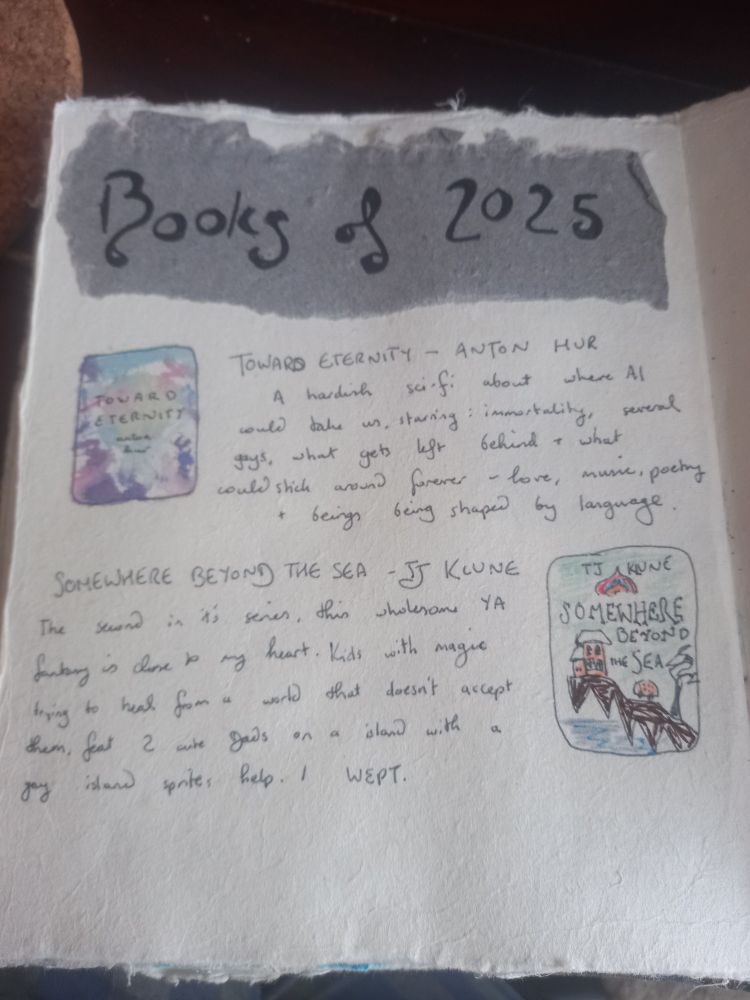 Books of 2025
TOWARD
ETERNITY
anton
hur
TOWARD ETERNITY - ANTON HUR
A hardish sci-fi about where AI
could take us, starring: immortality, several
gays, what gets left behind + what
could stick around forever - love, music, poetry
+ beings being shaped by language.
SOMEWHERE BEYOND THE SEA - TJ KLUNE
The second in it's series, this wholesome YA
fantasy is close to my heart. Kids with magic
trying to heal from a world that doesn't accept
them, feat 2 cute Dads on a island with a
gay island sprites help. I WEPT.
TJ KLUNE
SOMEWHERE
BEYOND
THE SEA